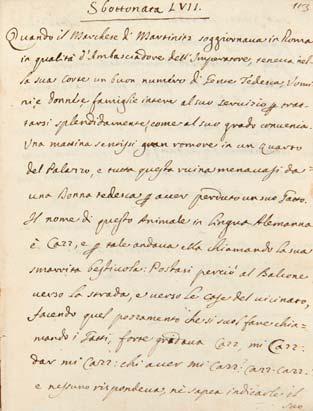 Sbottonata LVII.
113
Quando il Marchese di Martinitz soggiornava in Roma
in qualità d'Ambasciadore dell'Imperatore, teneva nel
la sua Corte un buon numero di Gente Tedesca, Uomi
ni e donne, e famiglie intere al suo servizio p trat
tarsi splendidamente, come al suo grado conveniva.
Una mattina sentissi gran romore in un quarto
del Palazzo, e tutta questa ruina menavasi da
una Donna tedesca p aver perduto un suo Gatto.
Il nome di questo Animale in Lingua Alemanna
è Cazz, e p tale andava ella chiamando la sua
smarrita bestivola: Postasi perciò al Balcone
verso la strada, e verso le case del vicinato,
facendo quel pozzamento che si suol fare chia
mando i Gatti, forte gridava Cazz, mi Cazz:
dar mi Cazz: chi aver mi Cazz: Cazz-Cazz:
e nessuno rispondeva, nè sapea indicarle il
suo